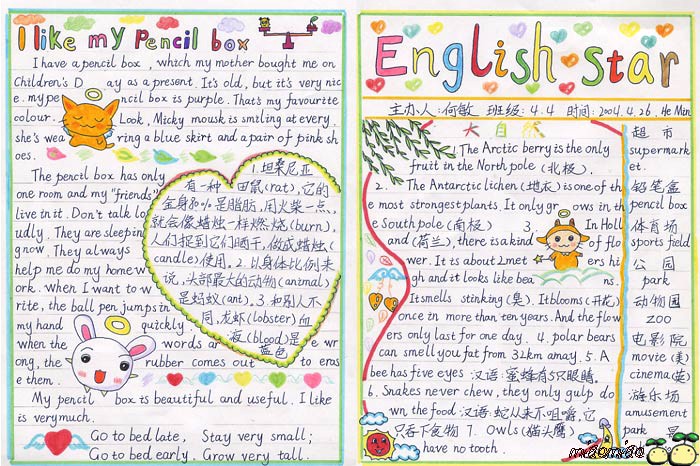 I like my pencil box
I have a pencil box, which my mother bought me on
Children's D ay as a present. It's old, but it's very nic
e. my pe ncil box is purple. That's my favourite
colour. Look, Micky mousk is smiling at every
she's wea ring a blue skirt and a pair of pink sh
oes.
The pencil box has only
one room and my "friends"
live in it. Don't talk lo
udly. They are sleeping
now. They always
help me do my home w
ork. When I want to w
rite, the ball pen jumps in
my hand quickly
when the words ar e wr
ong, the rubber comes out to eras
e them.
My pencil box is beautiful and useful. I like
is very much.
Go to bed late, Stay very small;
Go to bed early. Grow very tall.
1. 坦桑尼亚
有一种田鼠(rat),它的
全身80%是脂肪,用火柴一点,
就会像蜡烛一样燃烧(burn),
人们捉到它们晒干,做成蜡烛(
candle)使用。2. 以身体比例来
说,头部最大的动物(animal)
是蚂蚁(ant)。3. 和别人不
同,龙虾(lobster)血
液(blood)是
蓝色
English Star
主办人:何敏 班级:4.4 时间:2004.4.26. He Min
大自然
1. The Arctic berry is the only
fruit in the North pole (北极).
2. The Antarctic lichen (地衣) is one of th
e most strongest plants. It only gr ows in th
e South pole (南极) 3. In Holl
and (荷兰), there is a kind of flo
wer. It is about 2 met ers hi
gh and it looks like bea ns.
It smells stinking (臭). It blooms (开花)
once in more than ten years. And the flow
ers only last for one day. 4. polar bears
can smell you fat from 32km away. 5. A
bee has five eyes 汉语:蜜蜂有5只眼睛.
6. Snakes never chew, they only gulp do
wn the food 汉语:蛇从来不咀嚼,它
只吞下食物 7. Owls (猫头鹰)
have no tooth.
超市
supermark
et.
铅笔盒
pencil box
体育场
sports field
公园
park
动物园
zoo
电影院
movie (美)
cinema (英)
游乐场
amusement
park
maomao